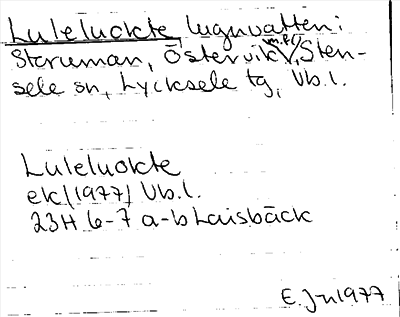 Luleluokte lugnvatten:
Storuman, Östervik m.fl., Sten-
sele sn, Lycksele tg, Vb.l.
Luleluokte
ek/(1977) Vb.l.
23H 6-7 a-b Laisbäck
E. Jn 1977